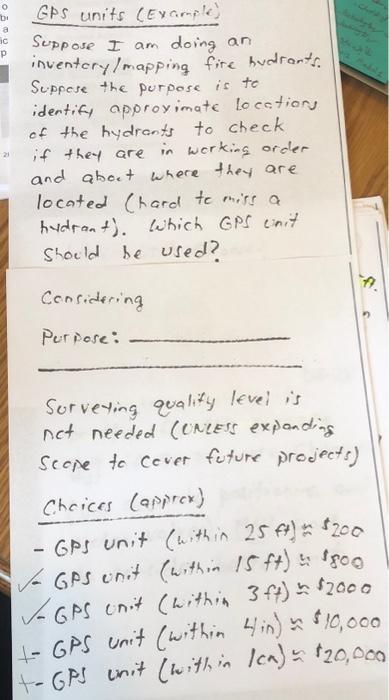 GPS units (Example)
Suppose I am doing an
inventory/mapping fire hydrants.
Suppose the purpose is to
identify approximate locations
of the hydrants to check
if they are in working order
and about where they are
located (hard to miss a
hydrant). Which GPS unit
should be used?
Considering
Purpose:
Surveying quality level is
not needed (UNLESS expanding
scope to cover future projects)
Choices (approx)
- GPS unit (within 25 ft) ≈ $200
✓- GPS unit (within 15 ft) ≈ $800
✓- GPS unit (within 3 ft) ≈ $2000
+- GPS unit (within 4in) ≈ $10,000
+- GPS unit (within 1cm) ≈ $20,000
ft.